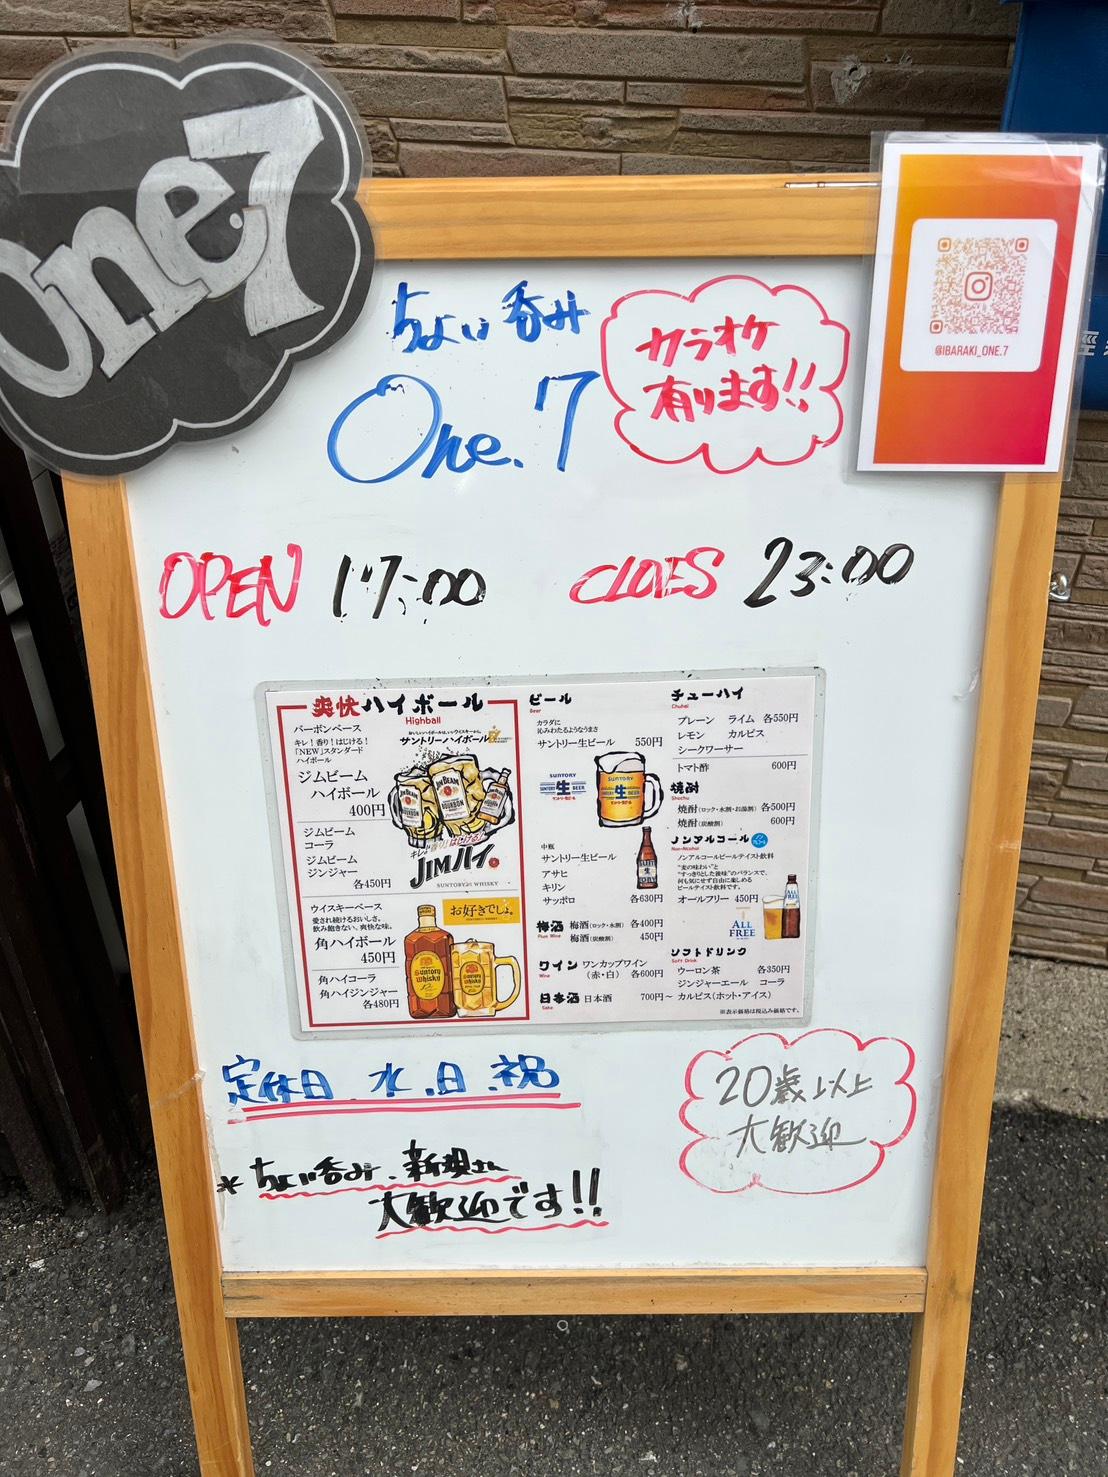 One.7
@IBARAKI_ONE.7
ちょい呑み
One.7
カラオケ
有ります!!
OPEN 17:00
CLOES 23:00
爽快ハイボール
Highball
バーボンベース
キレ!香り!はじける!
「NEW」スタンダード
ハイボール
ジムビーム
ハイボール
400円
ジムビーム
コーラ
ジムビーム
ジンジャー
各450円
サントリーハイボール
JIM BEAM
BOURBON
キレ!香り!はじける!
JIMハイ。
SUNTORY WHISKY
ウイスキーベース
愛され続けるおいしさ。
飲み飽きない、爽快な味。
角ハイボール
450円
角ハイコーラ
角ハイジンジャー
各480円
お好きでしょ。
Suntory
Whisky
ビール
Beer
カラダに
沁みわたるようなうまさ
サントリー生ビール 550円
SUNTORY
生
BEER
サントリー生ビール
SUNTORY
生
BEER
中瓶
サントリー生ビール
アサヒ
キリン
サッポロ 各630円
梅酒
Plum Wine
梅酒(ロック・水割) 各400円
梅酒(炭酸割) 450円
ワイン
Wine
ワンカップワイン
(赤・白) 各600円
日本酒
Sake
日本酒 700円~
チューハイ
Chuhai
プレーン ライム 各550円
レモン カルピス
シークワーサー
トマト酢 600円
焼酎
Shochu
焼酎(ロック・水割・お湯割) 各500円
焼酎(炭酸割) 600円
ノンアルコール
Non-Alcohol
ノンアルコールビールテイスト飲料
"麦の味わい"と
"すっきりとした後味"のバランスで、
何も気にせず自由に楽しめる
ビールテイスト飲料です。
オールフリー 450円
ALL
FREE
ソフトドリンク
Soft Drink
ウーロン茶 各350円
ジンジャーエール コーラ
カルピス(ホット・アイス)
※表示価格は税込み価格です。
定休日 水.日.祝
20歳以上
大歓迎
*ちょい呑み、新規さん
大歓迎です!!